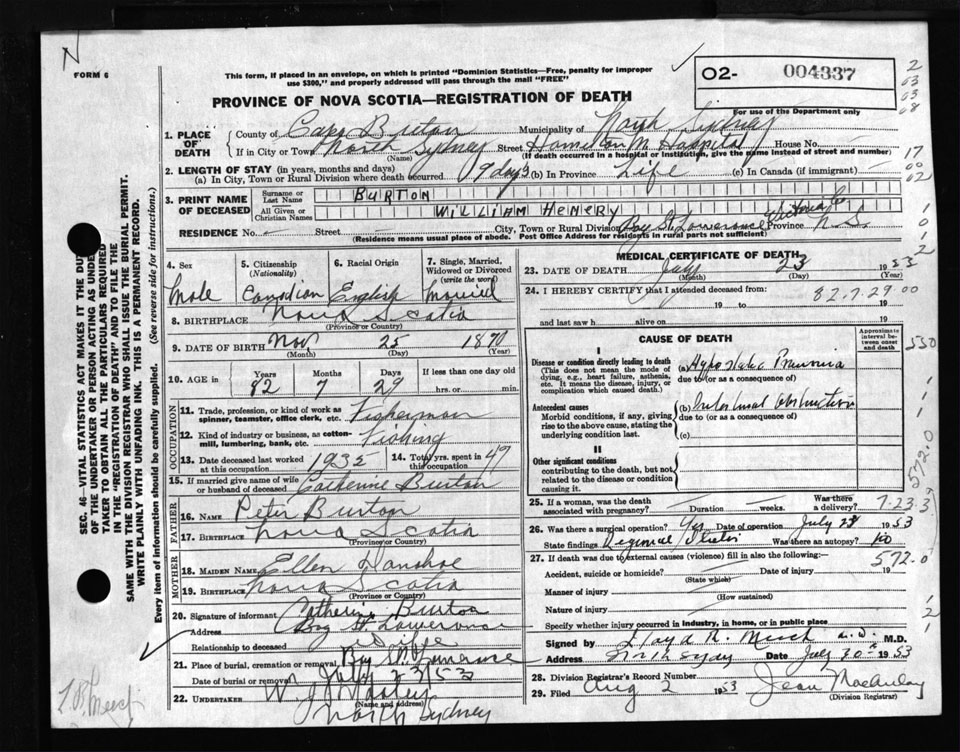 N
FORM 6
This form, if placed in an envelope, on which is printed "Dominion Statistics—Free, penalty for improper
use $300," and properly addressed will pass through the mail "FREE"
O2- 004337
PROVINCE OF NOVA SCOTIA—REGISTRATION OF DEATH
For use of the Department only
1. PLACE OF DEATH
County of Cape Breton Municipality of North Sydney
If in City or Town North Sydney Street Hamilton M. Hospital House No.
(Name) (If death occurred in a hospital or institution, give the name instead of street and number)
2. LENGTH OF STAY (in years, months and days)
(a) In City, Town or Rural Division where death occurred 9 days (b) In Province Life (c) In Canada (if immigrant)
3. PRINT NAME OF DECEASED
Surname or Last Name BURTON
All Given or Christian Names WILLIAM HENERY
RESIDENCE No. Street City, Town or Rural Division Bay St. Lawerence Victoria Co Province N.S.
(Residence means usual place of abode. Post Office Address for residents in rural parts not sufficient)
4. Sex Male
5. Citizenship (Nationality) Canadian
6. Racial Origin English
7. Single, Married, Widowed or Divorced (write the word) Married
8. BIRTHPLACE Nova Scotia
(Province or Country)
9. DATE OF BIRTH Nov 25 1870
(Month) (Day) (Year)
10. AGE in Years Months Days If less than one day old
82 7 29 hrs. or min.
OCCUPATION
11. Trade, profession, or kind of work as spinner, teamster, office clerk, etc. Fisherman
12. Kind of industry or business, as cotton-mill, lumbering, bank, etc. Fishing
13. Date deceased last worked at this occupation 1935
14. Total yrs. spent in this occupation 49
15. If married give name of wife or husband of deceased Catherine Burton
FATHER
16. Name Peter Burton
17. Birthplace Nova Scotia
(Province or Country)
MOTHER
18. MAIDEN NAME Ellen
19. Birthplace Nova Scotia
(Province or Country)
20. Signature of informant Catherine Burton
Address Bay St Lawerence
Relationship to deceased Wife
21. Place of burial, cremation or removal Bay St. Lawrence
Date of burial or removal July 23/53
22. UNDERTAKER W. J.
(Name and address)
North Sydney
MEDICAL CERTIFICATE OF DEATH
23. DATE OF DEATH July 23 1953
(Month) (Day) (Year)
24. I HEREBY CERTIFY that I attended deceased from: 82.7.29.00
19 to 19
and last saw h alive on 19
CAUSE OF DEATH
Approximate interval between onset and death
I
Disease or condition directly leading to death
(This does not mean the mode of dying, e.g., heart failure, asthenia, etc. It means the disease, injury, or complication which caused death.)
(a) Hypostatic Pneumonia
due to (or as a consequence of)
Antecedent causes
Morbid conditions, if any, giving rise to the above cause, stating the underlying condition last.
(b) Intestinal obstruction
due to (or as a consequence of)
(c)
II
Other significant conditions
contributing to the death, but not related to the disease or condition causing it.
25. If a woman, was the death associated with pregnancy? Duration weeks. Was there a delivery?
7-23.3
26. Was there a surgical operation? Yes Date of operation July 1953
State findings Regional Ileitis Was there an autopsy? No
27. If death was due to external causes (violence) fill in also the following:—
572.0
Accident, suicide or homicide? Date of injury 19
(State which)
Manner of injury
(How sustained)
Nature of injury
Specify whether injury occurred in industry, in home, or in public place
Signed by Lloyd R. M.D.
Address North Sydney Date July 30th 1953
28. Division Registrar's Record Number
29. Filed Aug 2 1953 Jean
(Division Registrar)
SEC. 46 - VITAL STATISTICS ACT MAKES IT THE DUTY
OF THE UNDERTAKER OR PERSON ACTING AS UNDER
TAKER TO OBTAIN ALL THE PARTICULARS REQUIRED
IN THE "REGISTRATION OF DEATH" AND TO FILE THE
SAME WITH THE DIVISION REGISTRAR WHO SHALL ISSUE THE BURIAL PERMIT.
WRITE PLAINLY WITH UNFADING INK. THIS IS A PERMANENT RECORD.
Every item of information should be carefully supplied. (See reverse side for instructions.)